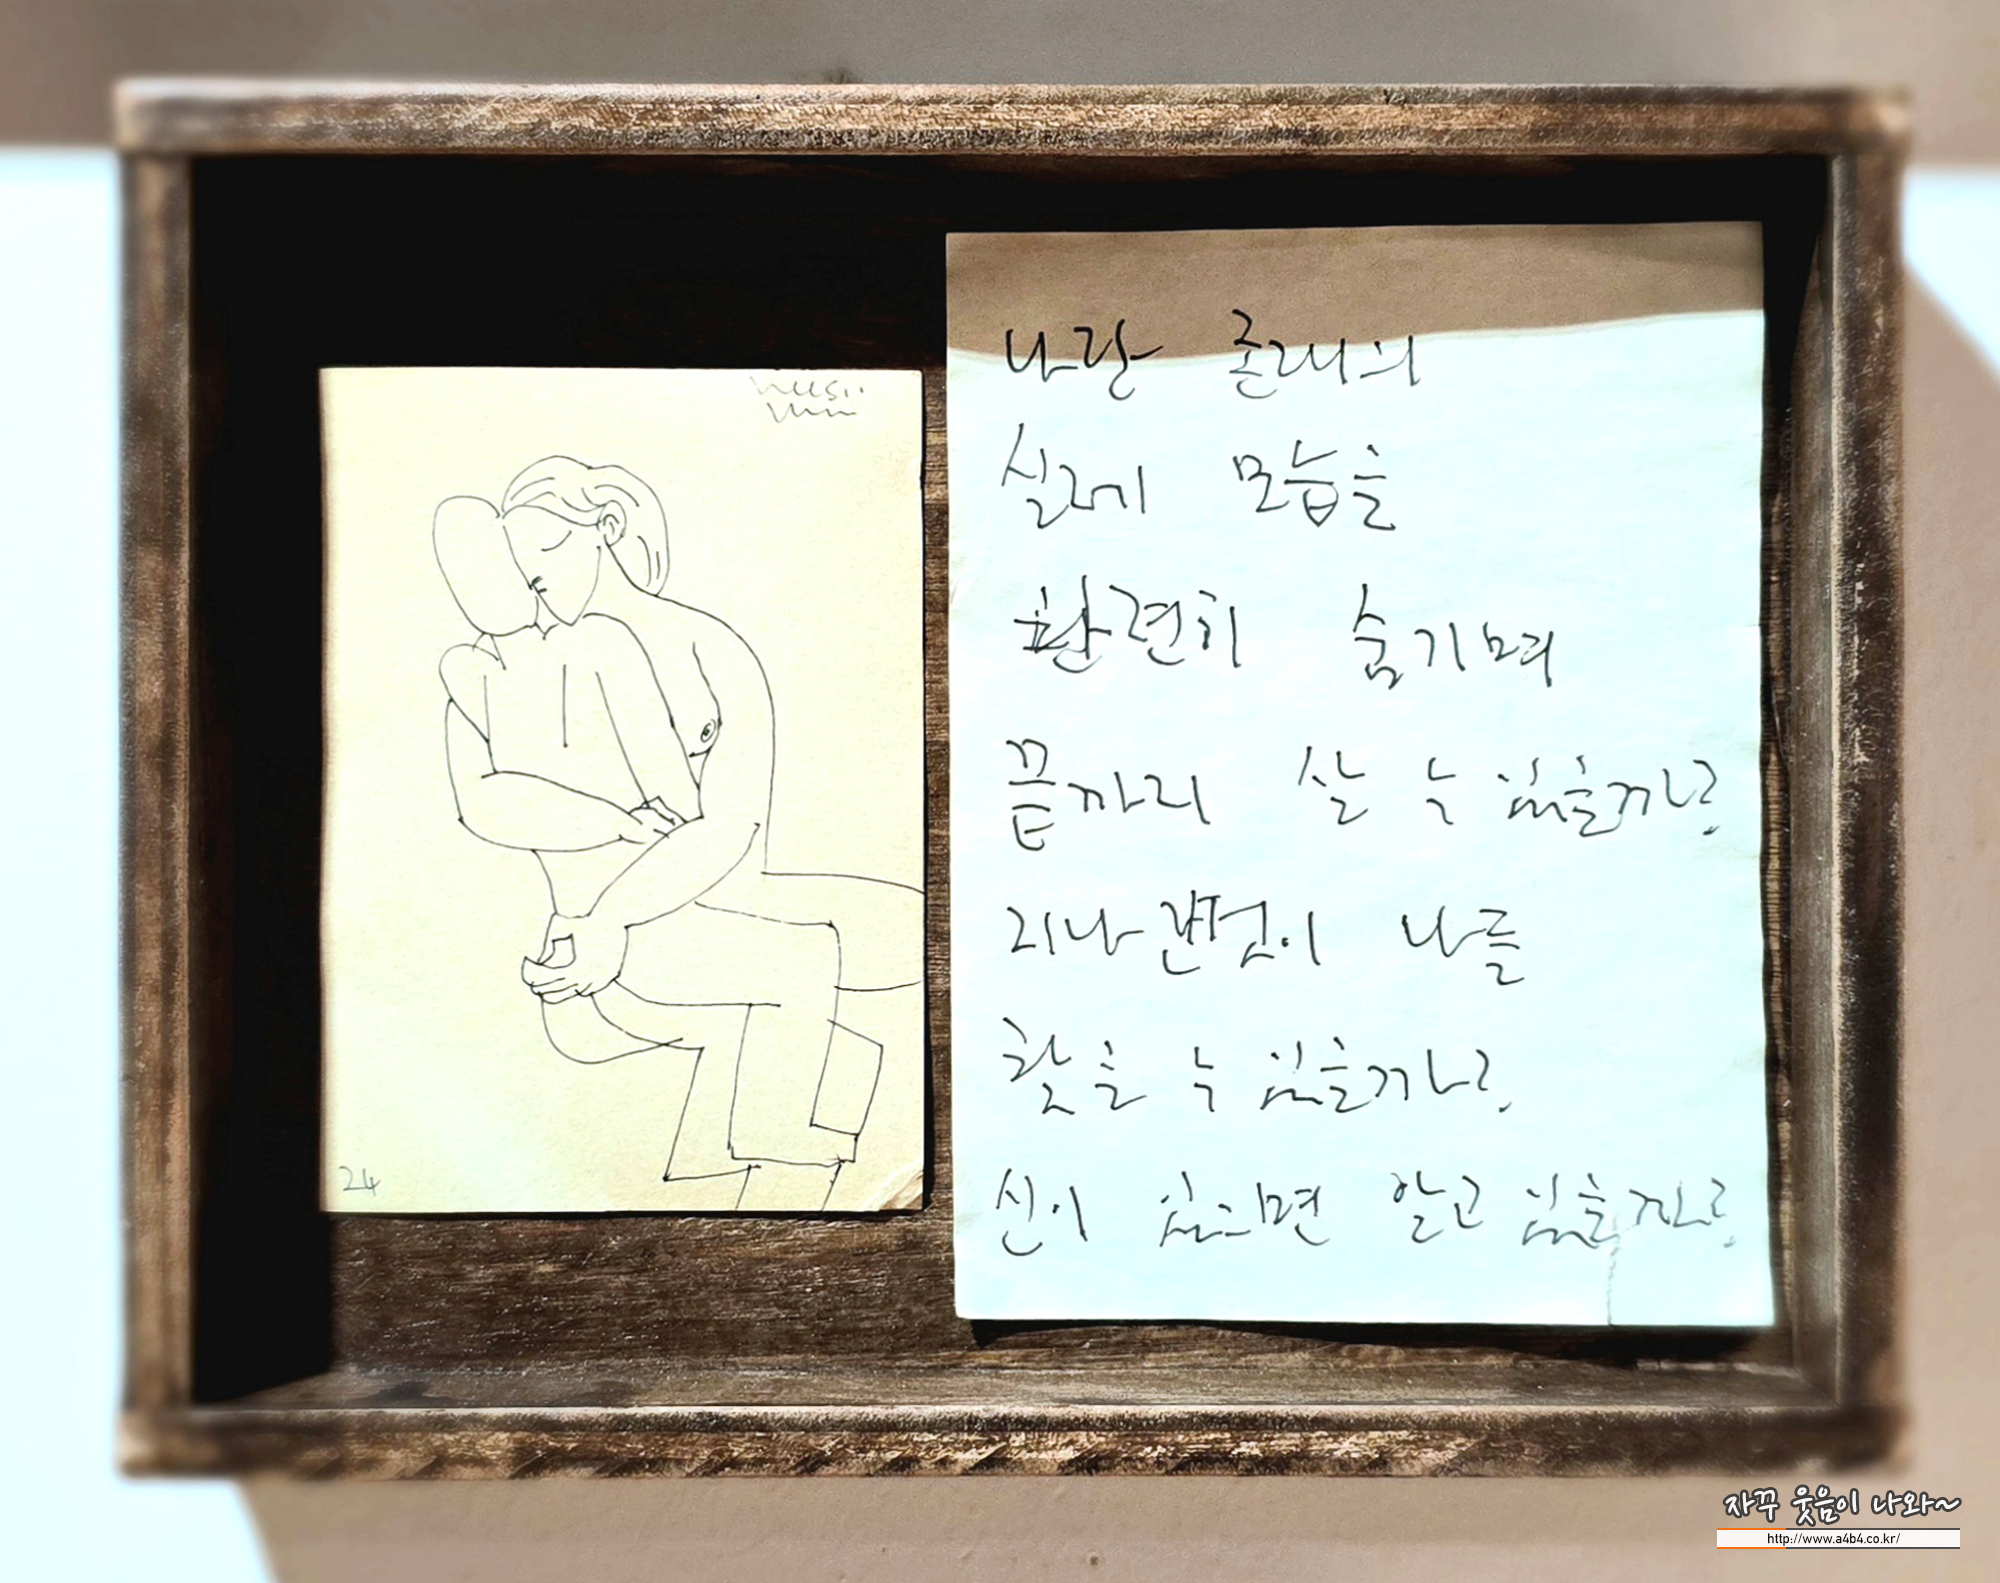 24
나란 존재의
실제 모습을
완전히 숨기며
끝까지 살 수 있을까?
지나간 범인이 나를
찾을 수 있을까?
신이 있으면 알고 있을까?
자꾸 웃음이 나와~
http://www.a4b4.co.kr/